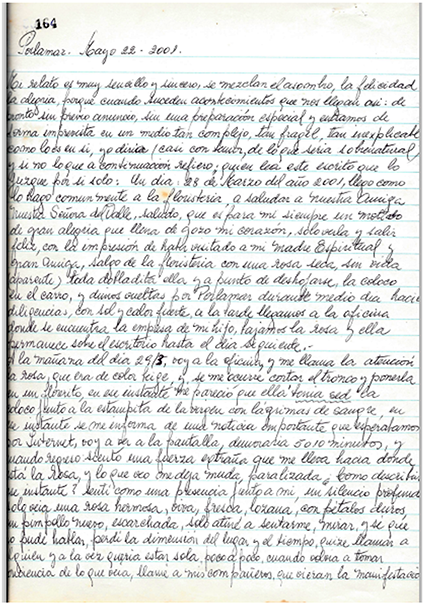 164
Porlamar. Mayo 22 - 2001.
Mi relato es muy sencillo y sincero, se mezclan el asombro, la felicidad
la alegria, porque cuando suceden acontecimientos que nos llegan asi: de
pronto sin previo anuncio, sin una preparación especial y entramos de
forma imprevista en un medio tan complejo, tan fragil, tan inexplicable
como lo es en si, yo diria (casi con temor, de lo que seria sobrenatural
y si no lo que a continuación refiero; quien lea este escrito que lo
juzgue por si solo: Un dia: 28 de Marzo del año 2001, llego como
lo hago comunmente a la floristeria, a saludar a nuestra Amiga
Nuestra Señora del Valle, saludo, que es para mi siempre un motivo
de gran alegria que llena de gozo mi corazón, solo verla y salir
feliz, con la impresión de haber visitado a mi madre Espiritual y
gran Amiga, salgo de la floristeria con una rosa seca, sin vida
aparente) toda dobladita ella y a punto de deshojarse, la coloco
en el carro, y dimos vueltas por Porlamar durante medio dia hacien
diligencias, con sol y calor fuerte, a la tarde llegamos a la oficina
donde se encuentra la empresa de mi hijo, bajamos la rosa y ella
permanece sobre el escritorio hasta el dia siguiente.-
A la mañana del dia 29/3, voy a la oficina, y me llama la atención
la rosa, que era de color beige y se me ocurre cortar el tronco y ponerla
en un florerito, en ese instante me pareció que ella tenia sed la
coloco junto a la estampita de la virgen con lágrimas de sangre, en
ese instante se me informa de una noticia importante que esperabamos
por Internet, voy a ver a la pantalla, demoraria 5 o 10 minutos, y
cuando regreso siento una fuerza extraña que me lleva hacia donde
está la Rosa, y lo que veo me deja muda, paralizada, ¿como describir
ese instante? Senti como una presencia junto a mi, un silencio profundo
solo veia una rosa hermosa, viva, fresca, lozana, con pétalos duros
un pimpollo nuevo, escarchada, solo atiné a sentarme, mirar, y se que
no pude hablar, perdi la dimensión del lugar, y el tiempo, quise llamar a
alguien y a la vez queria estar sola, poco a poco, cuando volvia a tomar
conciencia de lo que veia, llamé a mis compañeros, que vieran la manifestació